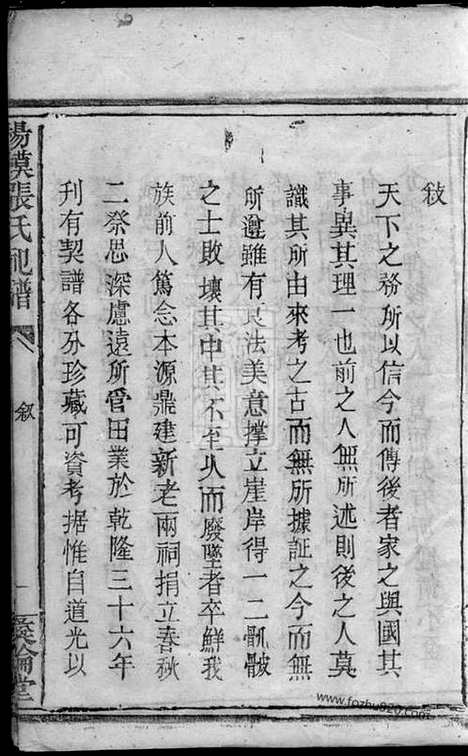 敍
天下之務所以信今而傳後者家之與國其
事異其理一也前之人無所述則後之人莫
識其所由來考之古而無所據証之今而無
所遵雖有良法美意撑立崖岸得一二骩骳
之士敗壞其中其不至久而廢墜者卒鮮我
族前人篤念本源鼎建新老兩祠捐立春秋
二祭思深慮遠所管田業於乾隆三十六年
刋有契譜各分珍藏可資考据惟自道光以
張氏祀譜
敘
一
倫堂
www.fozhu920.com